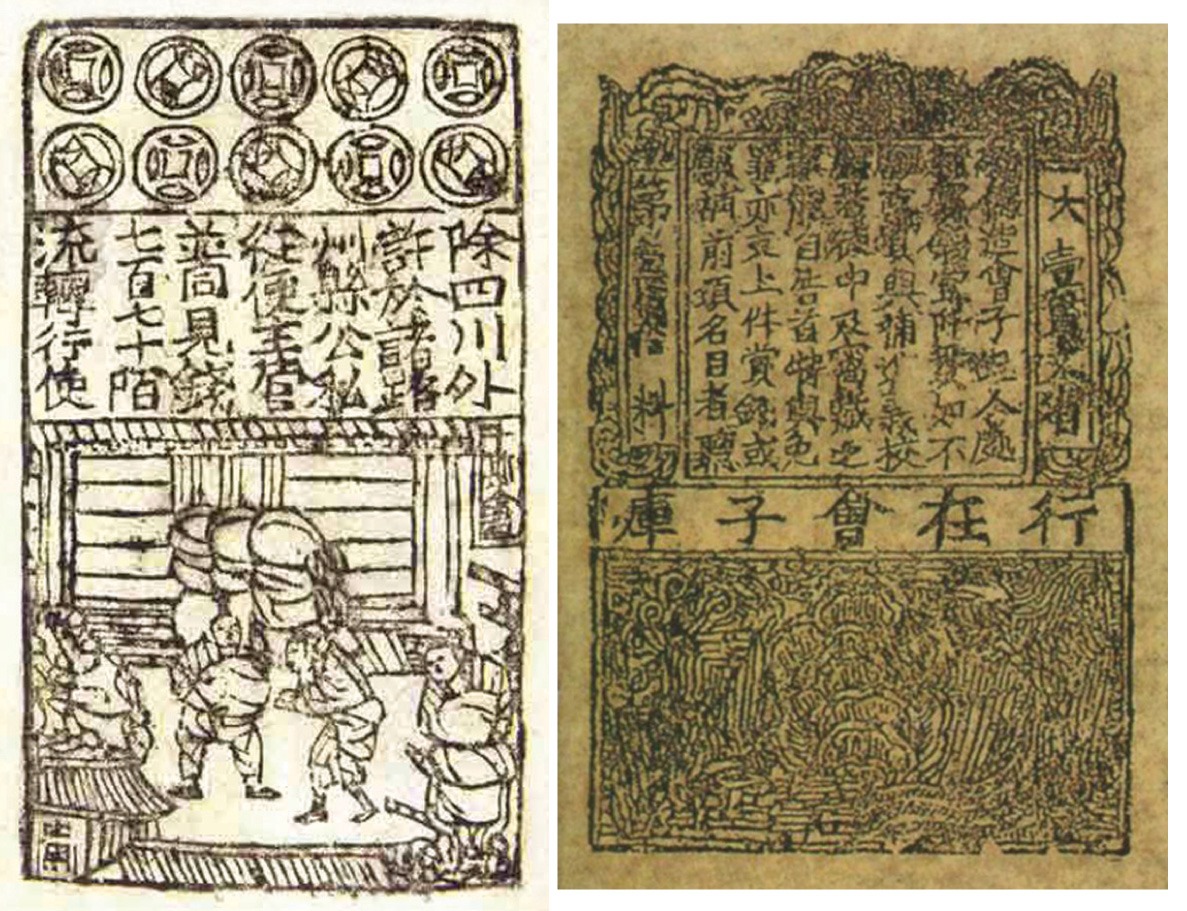 除四川外
許於諸路
州縣公私
從便主管
並同見錢
七百七十陌
流轉行使
大壹貫文省
造會子犯人處
賞錢壹阡貫如不
支賞與補進義校
徒中及窩藏之
能自告首特與免
罪亦支上件賞錢或
願補前項名目者聽
第 料
行在會子庫